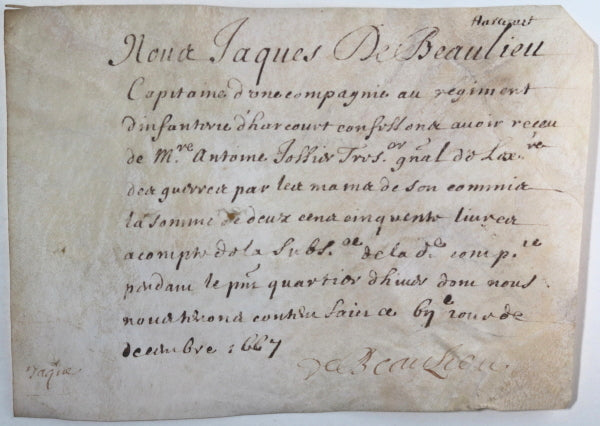 Harcourt
Nous Jaques De Beaulieu
Capitaine d'une compagnie au regiment
d'infanterie d'harcourt confessons avoir receu
de M.re Antoine Jossier Tres.or gnal de L'ex.re
des guerres par les mains de son commis
la somme de deux cens cinquente livres
acompte de la subs.ce de la d.e comp.ie
pendant le pnt quartier d'hiver dont nous
nous tenons content faict ce jour de
decembre 1667
de Beaulieu